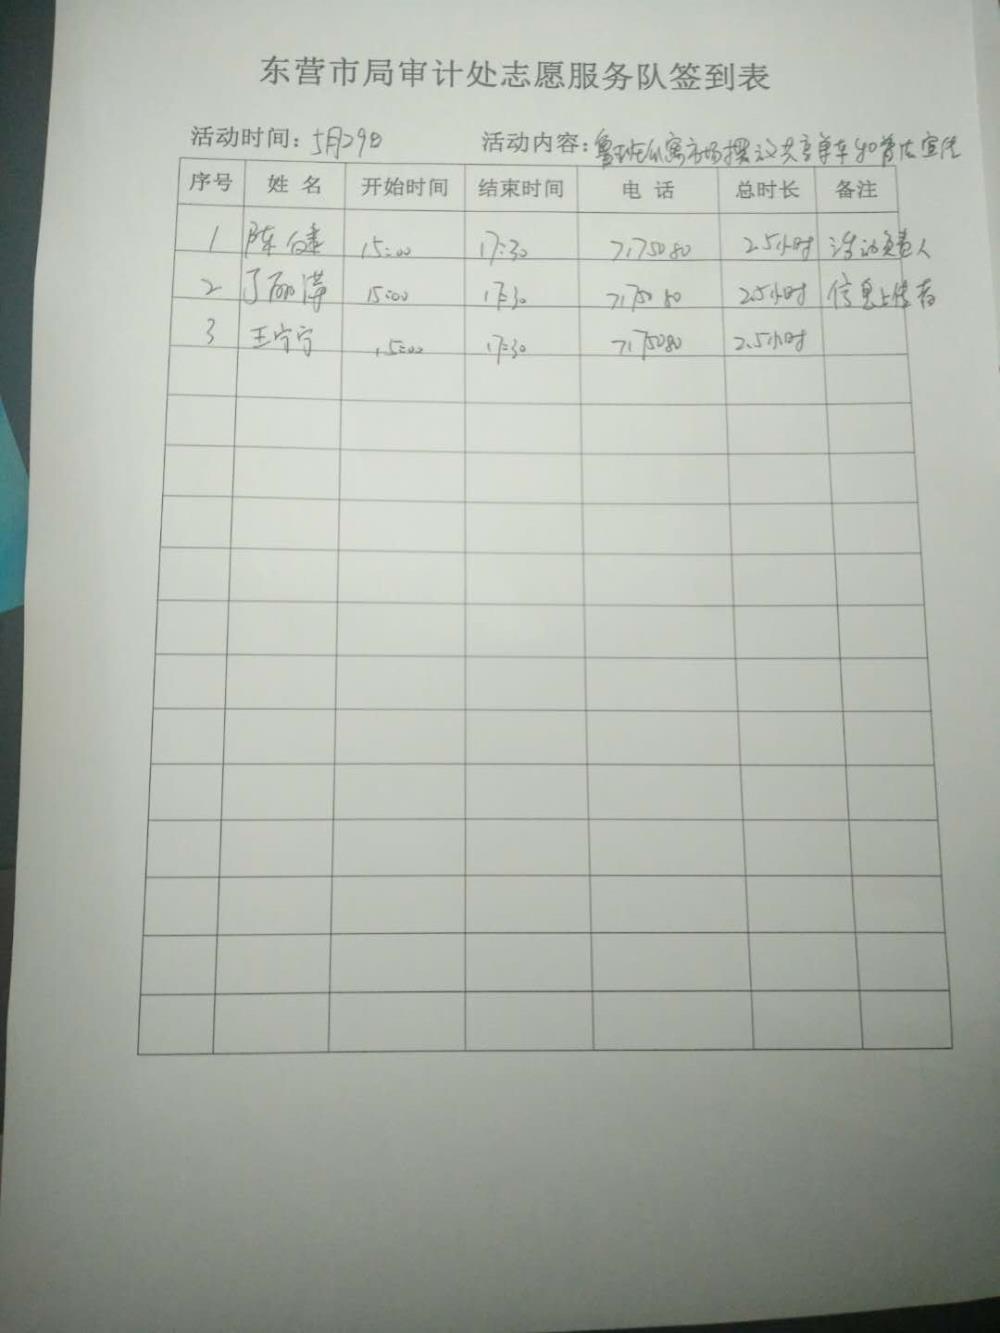 东营市局审计处志愿服务队签到表
活动时间：5月29日 活动内容：鲁班公寓市场摆设共享单车和普法宣传
序号 姓名 开始时间 结束时间 电话 总时长 备注
1 陈健 15:00 17:30 7175080 2.5小时 活动负责人
2 丁丽萍 15:00 17:30 7175080 2.5小时 信息上传者
3 王宁宁 15:00 17:30 7175080 2.5小时